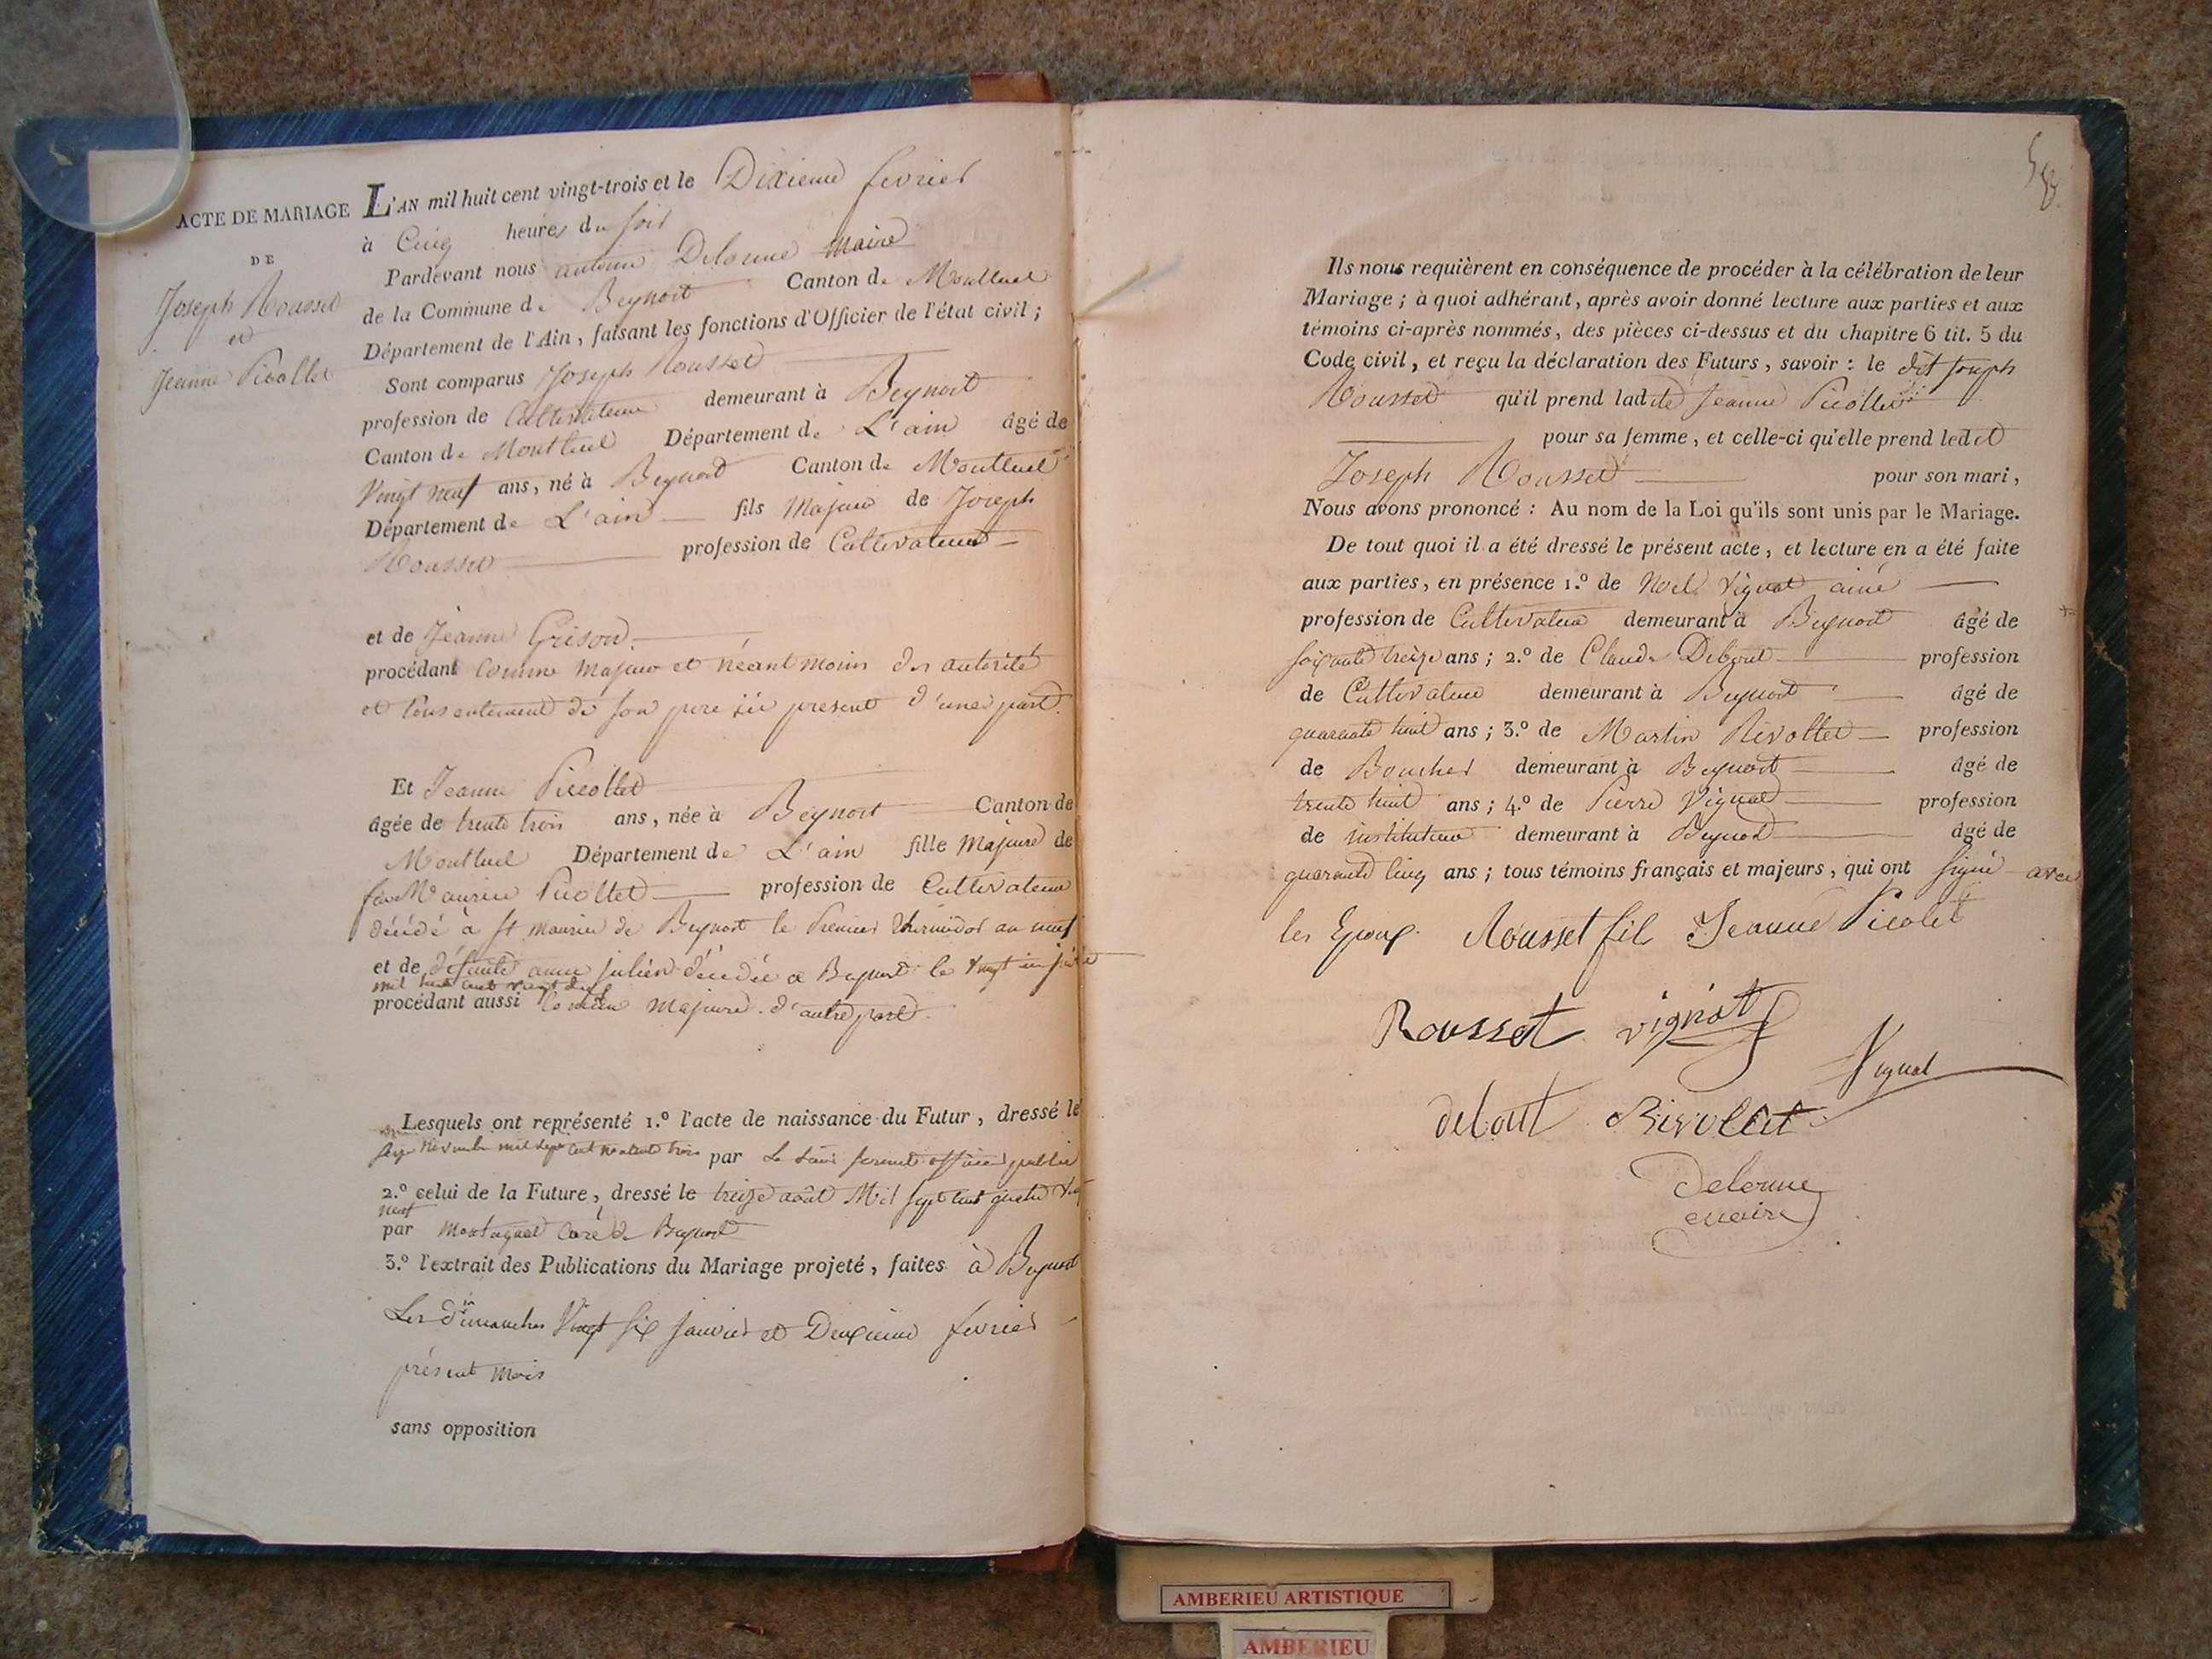 ACTE DE MARIAGE
DE
Joseph Rousset
et
Jeanne Picollet
L'AN mil huit cent vingt-trois et le Dixieme fevrier
à Cinq heures du soir
Pardevant nous antoine Delorme maire
de la Commune de Beynost Canton de Montluel
Département de l'Ain, faisant les fonctions d'Officier de l'état civil ;
Sont comparus Joseph Rousset
profession de Cultivateur demeurant à Beynost
Canton de Montluel Département de L'ain âgé de
Vingt neuf ans, né à Beynost Canton de Montluel
Département de L'ain fils Majeur de Joseph
Rousset profession de Cultivateur
et de Jeanne Grison
procédant Comme Majeur et néantmoins des autorité
et Consentement de son pere ici present d'une part.
Et Jeanne Piccollet
âgée de trente trois ans, née à Beynost Canton de
Montluel Département de L'ain fille Majeure de
feu Maurice Picollet profession de Cultivateur
décédé à St maurice de Beynost le Premier thermidor an neuf
et de défunte anne julien décédée à Beynost le vingt
mil huit cent
procédant aussi Comme Majeure d'autre part.
Lesquels ont représenté 1.º l'acte de naissance du Futur, dressé le
novembre mil sept cent par officier public
2.º celui de la Future, dressé le treize août Mil sept cent quatre vingt
neuf
par Montagnat Curé de Beynost
3.º l'extrait des Publications du Mariage projeté, faites à Beynost
Les dimanches Vingt six janvier et Deuxieme fevrier
présent mois
sans opposition
Ils nous requièrent en conséquence de procéder à la célébration de leur
Mariage ; à quoi adhérant, après avoir donné lecture aux parties et aux
témoins ci-après nommés, des pièces ci-dessus et du chapitre 6 tit. 5 du
Code civil, et reçu la déclaration des Futurs, savoir : le dit Joseph
Rousset qu'il prend ladite Jeanne Picollet
pour sa femme, et celle-ci qu'elle prend ledit
Joseph Rousset pour son mari,
Nous avons prononcé : Au nom de la Loi qu'ils sont unis par le Mariage.
De tout quoi il a été dressé le présent acte, et lecture en a été faite
aux parties, en présence 1.º de Noel Vignat ainé
profession de Cultivateur demeurant à Beynost âgé de
soixante treize ans ; 2.º de Claude Debout profession
de Cultivateur demeurant à Beynost âgé de
quarante huit ans ; 3.º de Martin Rivollet profession
de Boucher demeurant à Beynost âgé de
trente huit ans ; 4.º de Pierre Vignat profession
de instituteur demeurant à Beynost âgé de
quarante cinq ans ; tous témoins français et majeurs, qui ont signé avec
les Epoux. Rousset fils Jeanne Picolet
Rousset vignat
Vignat
debout Rivollet
Delorme
maire
AMBERIEU ARTISTIQUE
AMBERIEU